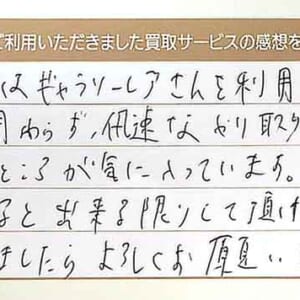 ご利用いただきました買取サービスの感想を
はギャラリーレアさんを利用
関わらず、迅速なやり取り
ところが気に入っています。
と出来る限りして頂け
ましたらよろしくお願い